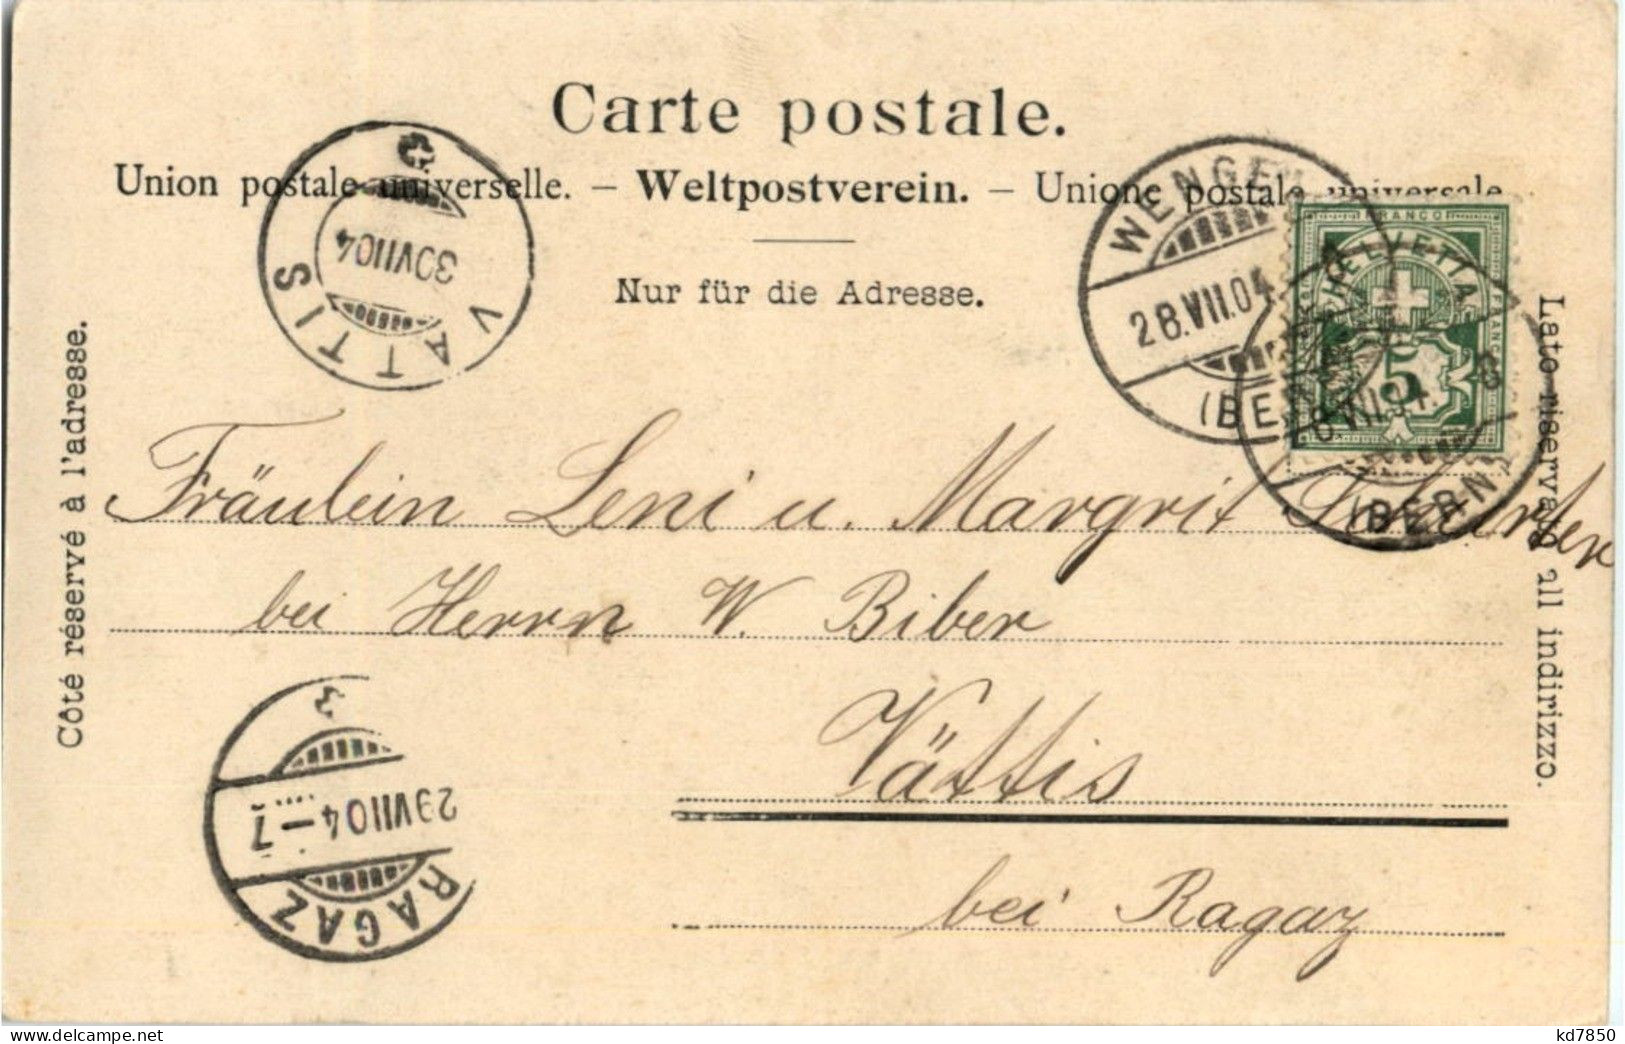 Carte postale.
Union postale universelle. – Weltpostverein. – Unione postale universale
Nur für die Adresse.
Côté réservé à l'adresse.
Lato riservato all indirizzo.
VÄTTIS
30 VII 04
WENGEN
28.VII.04
(BERN)
FRANCO
HELVETIA
FRANCO
5
8.VII.04.
(BERN)
Fräulein Leni u. Margrit
bei Herrn W. Biber
Vättis
bei Ragaz
29 VII 04 – 7
RAGAZ
kd7850